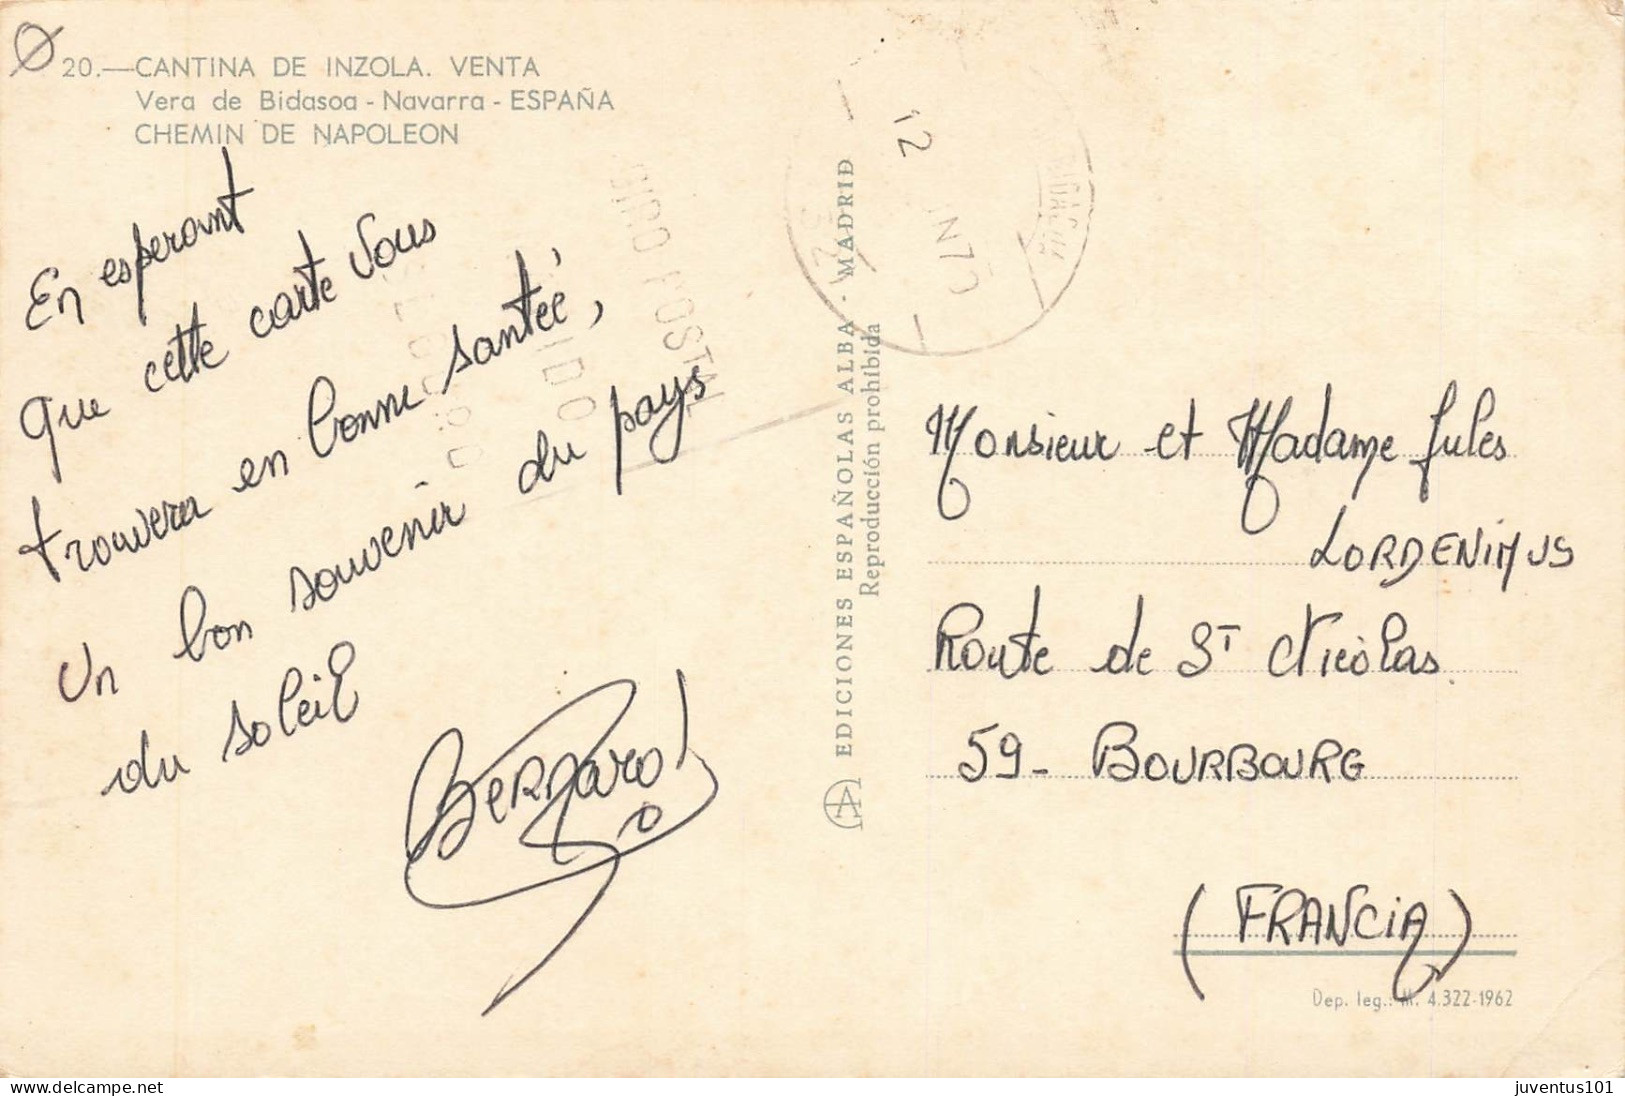 20.—CANTINA DE INZOLA. VENTA
Vera de Bidasoa - Navarra - ESPAÑA
CHEMIN DE NAPOLEON
En esperant
que cette carte vous
trouvera en bonne santée,
un bon souvenir du pays
du soleil
Bernard
GIRO POSTAL
12
EDICIONES ESPAÑOLAS ALBA - MADRID
Reproducción prohibida
Monsieur et Madame Jules
LORDENIMUS
Route de ST Nicolas
59 - BOURBOURG
(FRANCIA)
Dep. leg.: M. 4.322-1962
delcampe.net
juventus101